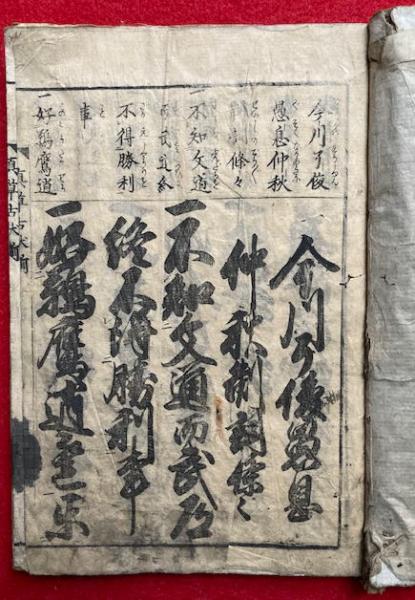 今川了俊
愚息仲秋
制詞條々
一不知文道
而武道終
不得勝利
事
一好鵜鷹逍
今川了俊愚息
仲秋制詞條々
一不知文道而武道
終不得勝利事
一好鵜鷹逍遥楽